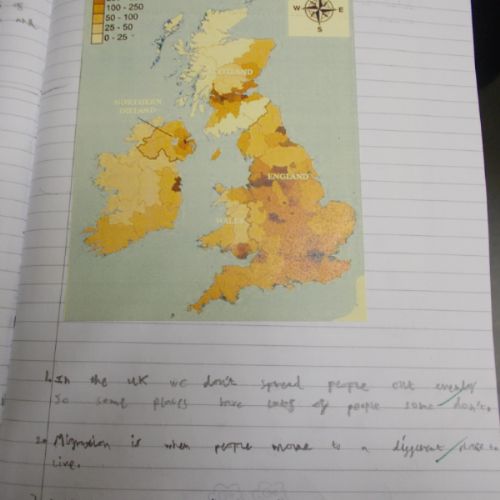 100 - 250
50 - 100
25 - 50
0 - 25
W E
S
SCOTLAND
NORTHERN
IRELAND
ENGLAND
WALES
1. In the UK we don't spread people out evenly
so some places have lots of people some don't.
2. Migration is when people move to a different place to
live.